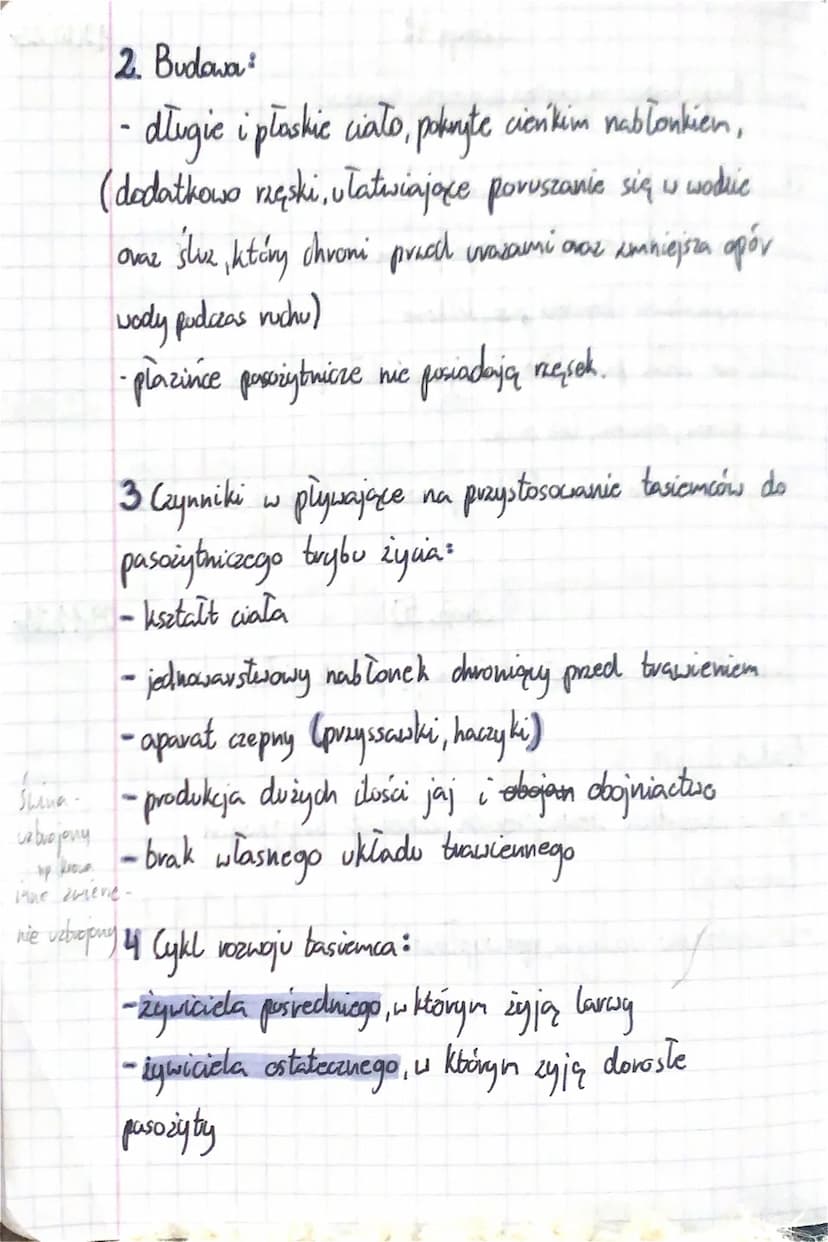 2. Budowa:
- długie i płaskie ciało, pokryte cieńkim nabłonkiem,
(dodatkowo rzęski, ułatwiające poruszanie się w wodzie
oraz śluz, który chroni przed urazami oraz zmniejsza opór
wody podczas ruchu)
- płazińce pasożytnicze nie posiadają rzęsek.
3 Czynniki w pływające na przystosowanie tasiemców do
pasożytniczego trybu życia:
- kształt ciała
- jednowarstwowy nabłonek chroniący przed trawieniem
- aparat czepny (przyssawki, haczyki)
- produkcja dużych ilości jaj i obojan obojniactwo
- brak własnego układu trawiennego
Świna -
uzbrojony
np krowa
inne zwierzę -
nie uzbrojony
4 Cykl rozwoju tasiemca:
- żywiciela pośredniego, w którym żyją larwy
- żywiciela ostatecznego, w którym zyją dorosłe
pasożyty